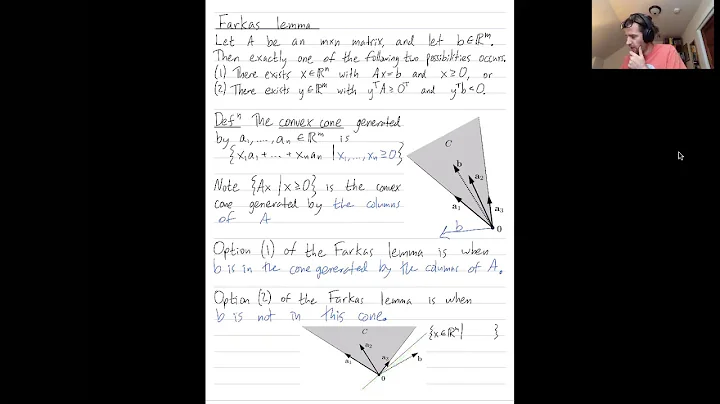 Farkas lemma
Let A be an m×n matrix, and let b∈ℝᵐ.
Then exactly one of the following two possibilities occurs.
(1) There exists x∈ℝⁿ with Ax=b and x≥0, or
(2) There exists y∈ℝᵐ with yᵀA≥0ᵀ and yᵀb<0.
Defⁿ The convex cone generated
by a₁,...,aₙ∈ℝᵐ is
{x₁a₁+...+xₙaₙ | x₁,...,xₙ≥0}
C
b
a₂
a₁
a₃
0
b
Note {Ax | x≥0} is the convex
cone generated by the columns
of A
Option (1) of the Farkas lemma is when
b is in the cone generated by the columns of A.
Option (2) of the Farkas lemma is when
b is not in this cone.
C
a₂
a₁
a₃
b
0
{x∈ℝᵐ| }